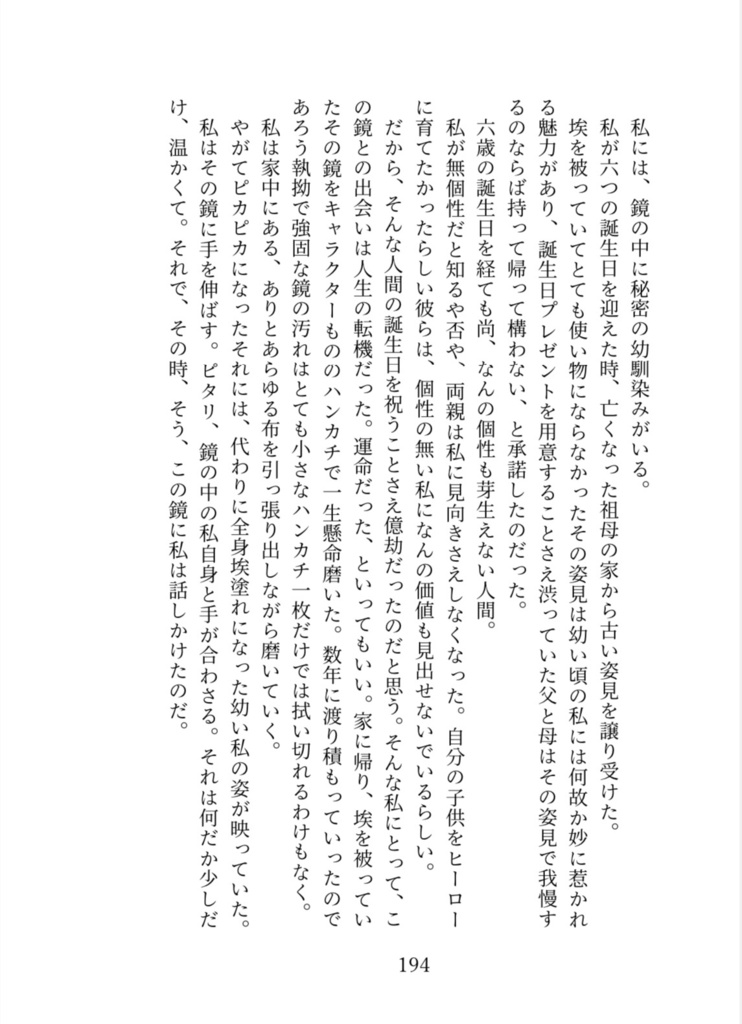 私には、鏡の中に秘密の幼馴染みがいる。
私が六つの誕生日を迎えた時、亡くなった祖母の家から古い姿見を譲り受けた。
埃を被っていてとても使い物にならなかったその姿見は幼い頃の私には何故か妙に惹かれ
る魅力があり、誕生日プレゼントを用意することさえ渋っていた父と母はその姿見で我慢す
るのならば持って帰って構わない、と承諾したのだった。
六歳の誕生日を経ても尚、なんの個性も芽生えない人間。
私が無個性だと知るや否や、両親は私に見向きさえしなくなった。自分の子供をヒーロー
に育てたかったらしい彼らは、個性の無い私になんの価値も見出せないでいるらしい。
だから、そんな人間の誕生日を祝うことさえ億劫だったのだと思う。そんな私にとって、こ
の鏡との出会いは人生の転機だった。運命だった、といってもいい。家に帰り、埃を被ってい
たその鏡をキャラクターもののハンカチで一生懸命磨いた。数年に渡り積もっていったので
あろう執拗で強固な鏡の汚れはとても小さなハンカチ一枚だけでは拭い切れるわけもなく。
私は家中にある、ありとあらゆる布を引っ張り出しながら磨いていく。
やがてピカピカになったそれには、代わりに全身埃塗れになった幼い私の姿が映っていた。
私はその鏡に手を伸ばす。ピタリ、鏡の中の私自身と手が合わさる。それは何だか少しだ
け、温かくて。それで、その時、そう、この鏡に私は話しかけたのだ。
194